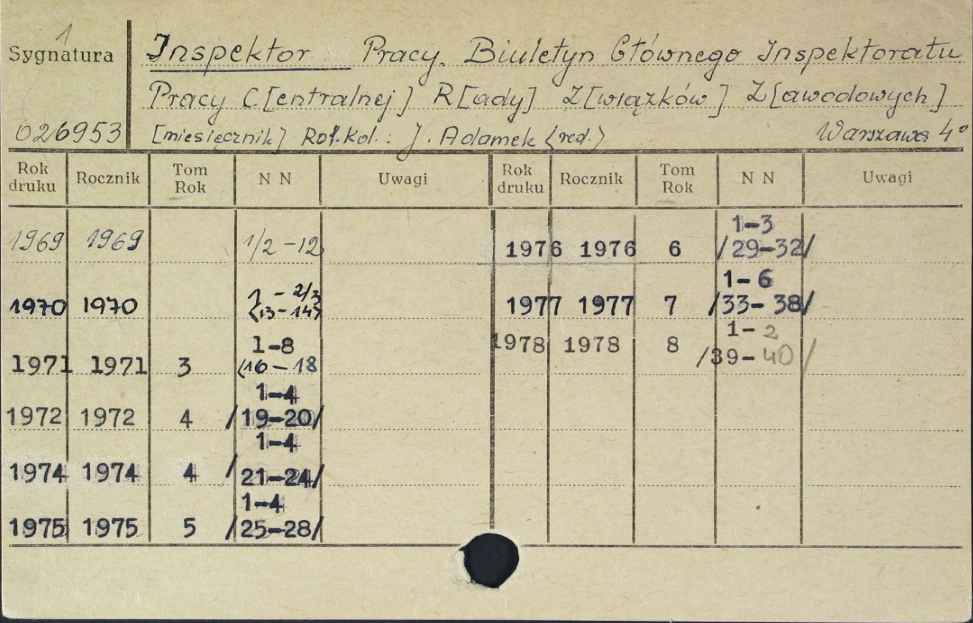 1
Sygnatura
Inspektor Pracy. Biuletyn Głównego Inspektoratu
Pracy C[entralnej] R[ady] Z[wiązków] Z[awodowych]
026953 [miesięcznik] Red. Kol.: J. Adamek (red.) Warszawa 4°
Rok druku Rocznik Tom Rok N N Uwagi Rok druku Rocznik Tom Rok N N Uwagi
1969 1969 1/2 -12
1970 1970 1 - 2/3
(13-14)
1971 1971 3 1-8
(16-18
1972 1972 4 1-4
/19-20/
1974 1974 4 1-4
/21-24/
1975 1975 5 1-4
/25-28/
1976 1976 6 1-3
/29-32/
1977 1977 7 1-6
/33-38/
1978 1978 8 1-2
/39-40/